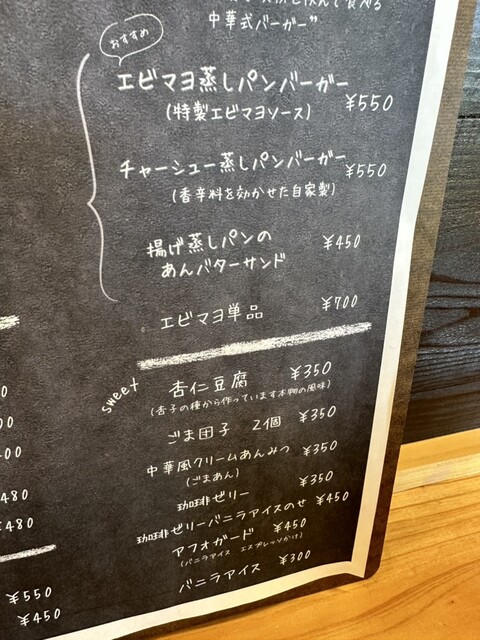 中華式バーガー"
おすすめ
エビマヨ蒸しパンバーガー ¥550
(特製エビマヨソース)
チャーシュー蒸しパンバーガー ¥550
(香辛料を効かせた自家製)
揚げ蒸しパンの ¥450
あんバターサンド
エビマヨ単品 ¥700
sweet
杏仁豆腐 ¥350
(杏子の種から作っています本物の風味)
ごま団子 2個 ¥350
中華風クリームあんみつ ¥350
(ごまあん)
珈琲ゼリー ¥350
珈琲ゼリーバニラアイスのせ ¥450
アフォガード ¥450
(バニラアイス エスプレッソかけ)
バニラアイス ¥300
480
¥480
¥550
¥450